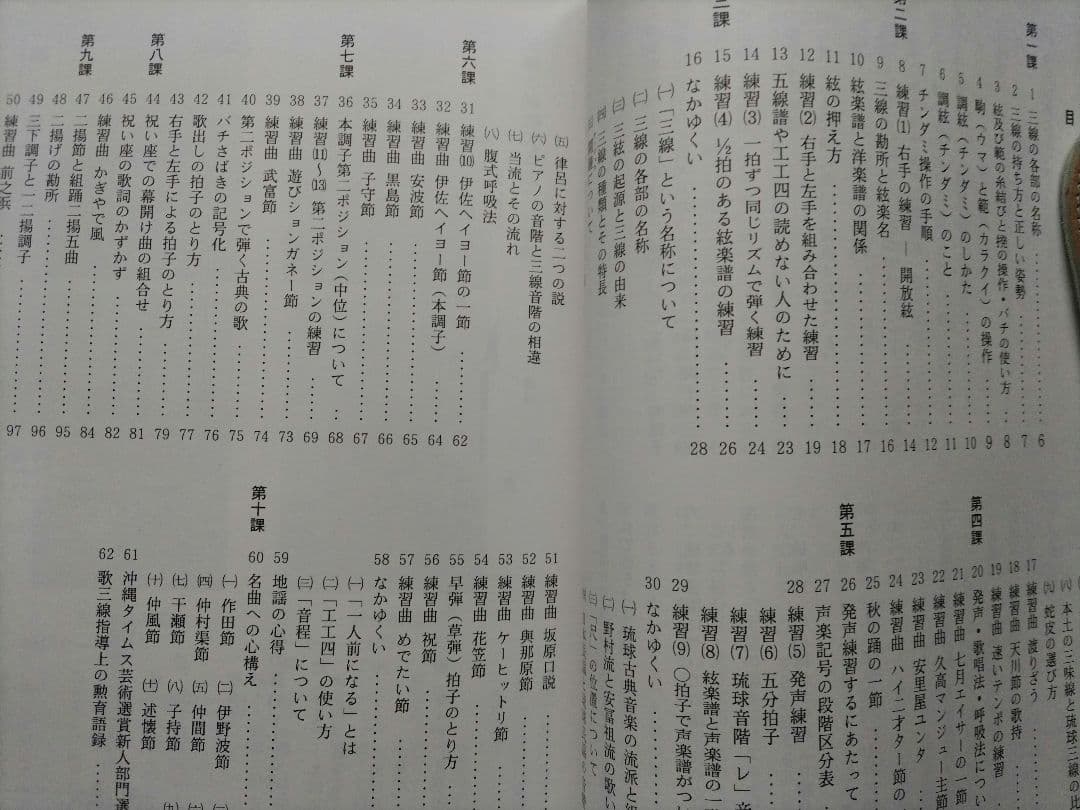 目
第一課
1 三線の各部の名称 6
2 三線の持ち方と正しい姿勢 7
3 絃及び範の糸結びと捲の操作・バチの使い方 8
4 駒(ウマ)と範(カラクイ)の操作 9
5 調絃(チンダミ)のしかた 10
6 調絃(チンダミ)のこと 11
7 チンダミ操作の手順 12
第二課
8 練習(1) 右手の練習―開放絃 14
9 三線の勘所と絃楽名 16
10 絃楽譜と洋楽譜の関係 17
11 絃の押え方 18
12 練習(2) 右手と左手を組み合わせた練習 19
13 五線譜や工工四の読めない人のために 23
14 練習(3) 一拍ずつ同じリズムで弾く練習 24
三課
15 練習(4) ½拍のある絃楽譜の練習 26
16 なかゆくい 28
㈠「三線」という名称について
㈡ 三線の各部の名称
㈢ 三絃の起源と三線の由来
㈣ 三線の種類とその特長
㈤ 律呂に対する二つの説
㈥ ピアノの音階と三線音階の相違
㈦ 当流とその流れ
㈧ 腹式呼吸法
第六課
31 練習⑽ 伊佐ヘイヨー節の一節 62
32 練習曲 伊佐ヘイヨー節(本調子) 64
33 練習曲 安波節 65
34 練習曲 黒島節 66
35 練習曲 子守節 67
第七課
36 本調子第二ポジション(中位)について 68
37 練習⑾~⒀ 第二ポジションの練習 69
38 練習曲 遊びションガネー節 73
39 練習曲 武富節 74
40 第二ポジションで弾く古典の歌 75
41 バチさばきの記号化 76
42 歌出しの拍子のとり方 77
第八課
43 右手と左手による拍子のとり方 79
44 祝い座での幕開け曲の組合せ 81
45 祝い座の歌詞のかずかず
46 練習曲 かぎやで風 82
第九課
47 二揚節と組踊二揚五曲 84
48 二揚げの勘所 95
49 三下調子と一二揚調子 96
50 練習曲 前之浜 97
㈥ 本土の三味線と琉球三線の
㈨ 蛇皮の選び方
第四課
17 練習曲 渡りぞう
18 練習曲 天川節の歌持
19 練習曲 速いテンポの練習
20 発声・歌唱法・呼吸法につい
21 練習曲 七月エイサーの一節
22 練習曲 久高マンジュー主節
23 練習曲 安里屋ユンタ
24 練習曲 ハイ二才ターの
25 秋の踊の一節
第五課
26 発声練習するにあたって
27 声楽記号の段階区分表
28 練習(5) 発声練習
練習(6) 五分拍子
練習(7) 琉球音階「レ」音
練習(8) 絃楽譜と声楽譜の一
29 練習(9) ○拍子で声楽譜がつ
30 なかゆくい
㈠ 琉球古典音楽の流派と
㈡ 野村流と安冨祖流の歌い
51 練習曲 坂原口説
52 練習曲 與那原節
53 練習曲 ケーヒットリ節
54 練習曲 花笠節
55 早弾(草弾)拍子のとり方
56 練習曲 祝節
57 練習曲 めでたい節
58 なかゆくい
㈠「一人前になる」とは
㈡「工工四」の使い方
㈢「音程」について
59 地謡の心得
第十課
60 名曲への心構え
㈠ 作田節 ㈡ 伊野波節
㈣ 仲村渠節 ㈤ 仲間節
㈦ 干瀬節 ㈧ 子持節
㈩ 仲風節 ㈩ 述懐節
61 沖縄タイムス芸術選賞新人部門選
62 歌三線指導上の勲育語録